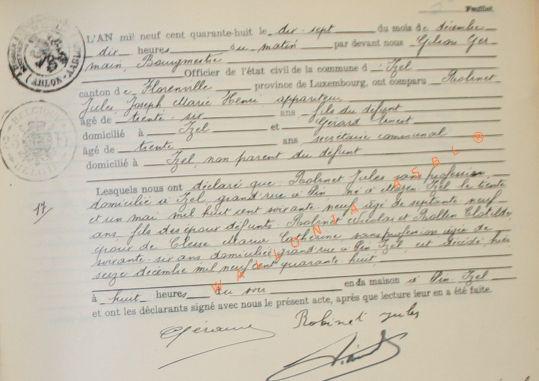 Feuillet.
L'AN mil neuf cent quarante-huit le dix-sept du mois de décembre
dix heures du matin par devant nous Ger-
main, Bourgmestre
Officier de l'état civil de la commune d Izel
canton de Florenville province de Luxembourg, ont comparu Robinet
Jules Joseph Marie Henri
âgé de trente-six ans fils du défunt
domicilié à Izel et Gérard
âgé de trente ans secrétaire communal
domicilié à Izel non parent du défunt
Lesquels nous ont déclaré que Robinet Jules sans profession,
domicilié à Izel, grand rue à Pin né à Izel le trente
et un mai mil huit cent soixante neuf âgé de septante neuf
ans fils des époux défunts Robinet Nicolas et Clotilde
époux de Marie Catherine sans profession âgée de
soixante-six ans domiciliée grand rue à Pin Izel est décédé hier
seize décembre mil neuf cent quarante huit
à huit heures du soir en da maison à Pin Izel
et ont les déclarants signé avec nous le présent acte, après que lecture leur en a été faite.
17
ARLON
WALLONIA ASBL ®
Robinet Jules